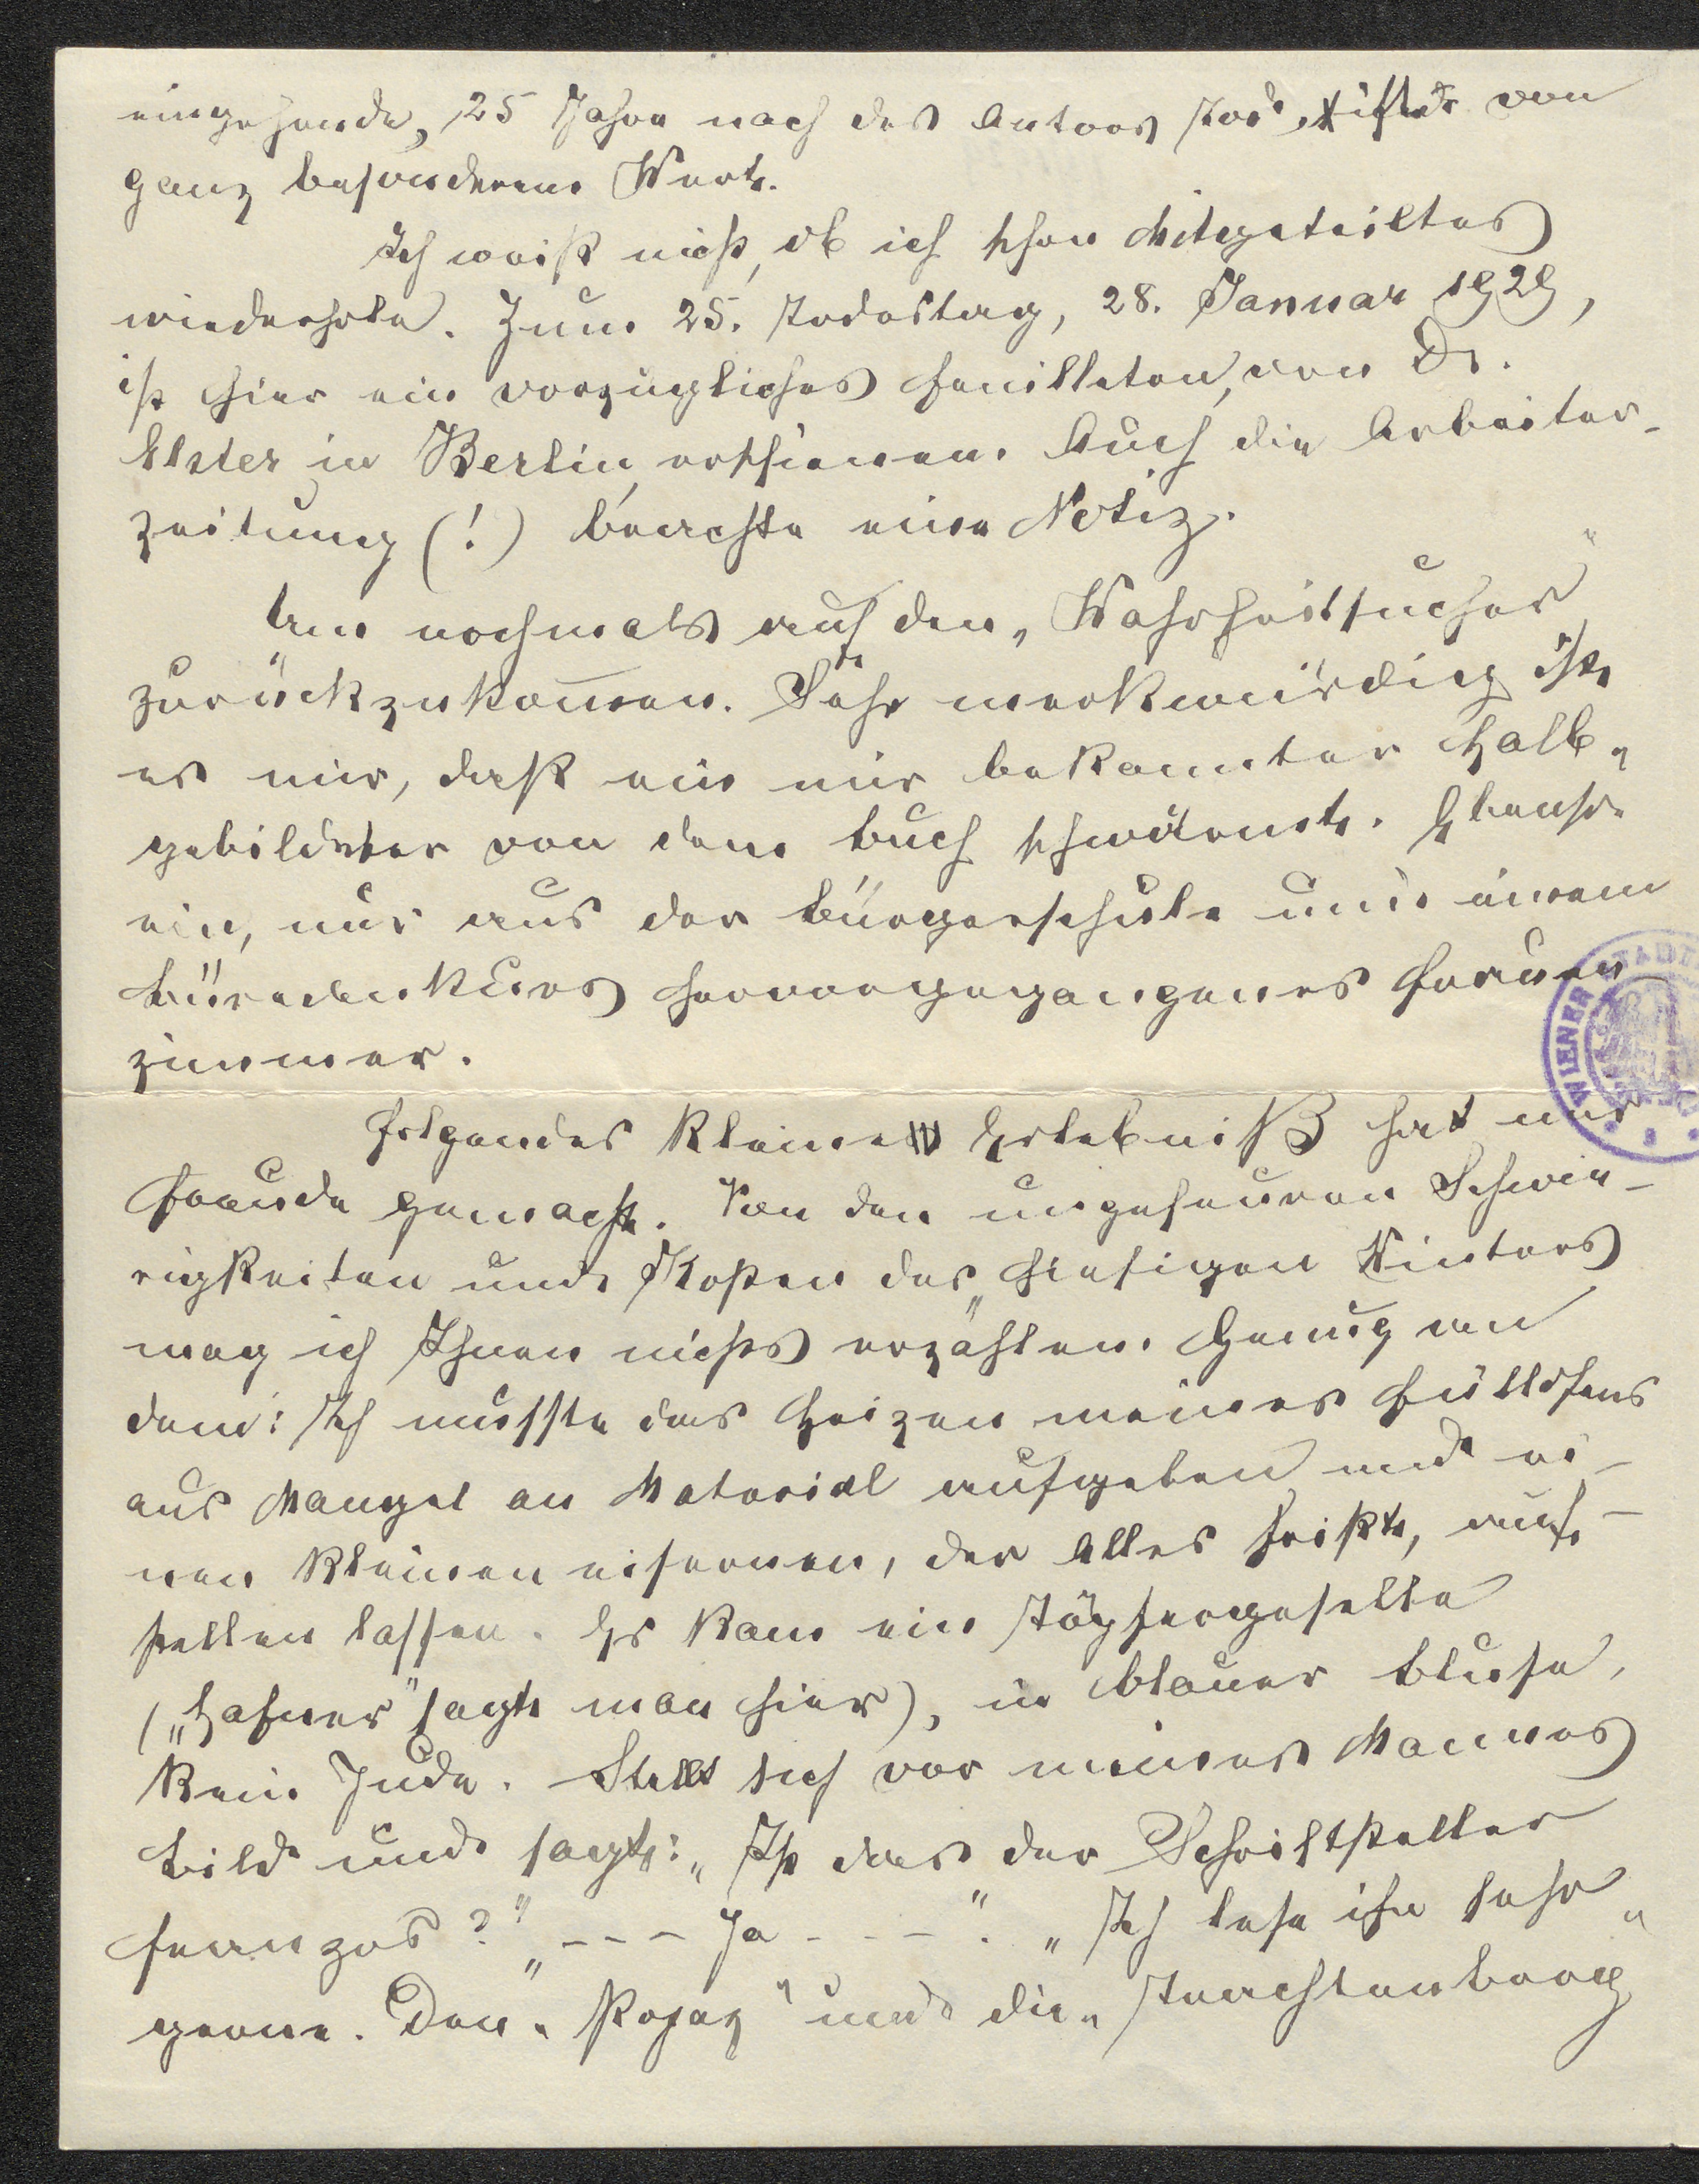 eingehende, 25 Jahre nach des Autors Tod, von
ganz besonderem Wert.
Ich weiß nicht, ob ich schon Mitgeteiltes
wiederhole. Zum 25. Todestag, 28. Januar 1929,
ist hier ein vorzügliches Feuilleton, von Dr.
Elster in Berlin, erschienen. Auch die Arbeiter-
zeitung (!) brachte eine Notiz.
Um nochmals auf den „Wahrheitsucher"
zurückzukommen. Sehr merkwürdig ist
es mir, daß ein mir bekannter Halb-
gebildeter von dem Buch schwärmt. Ebenso
ein, nur aus der Bürgerschule und einem
hervorgegangenes Frauen
zimmer.
Folgendes kleine Erlebniß hat mir
Freude gemacht. Von den ungeheuren Schwie-
rigkeiten und Kosten des heurigen Winters
mag ich Ihnen nichts erzählen. Genug an
dem: Ich mußte das Heizen meines Füllofens
aus Mangel an Material aufgeben und ei-
nen kleinen eisernen, der Alles frißt, auf-
stellen lassen. Es kam ein Töpfergeselle
(„Hafner" sagt man hier), in blauer Bluse,
kein Jude. Stellt sich vor meines Mannes
Bild und sagt: „Ist das der Schriftsteller
Franzos?" „--- Ja ---". „Ich lese ihn sehr
gerne. Den „Pojaz" und die „Trachtenberg
WIENER STADT